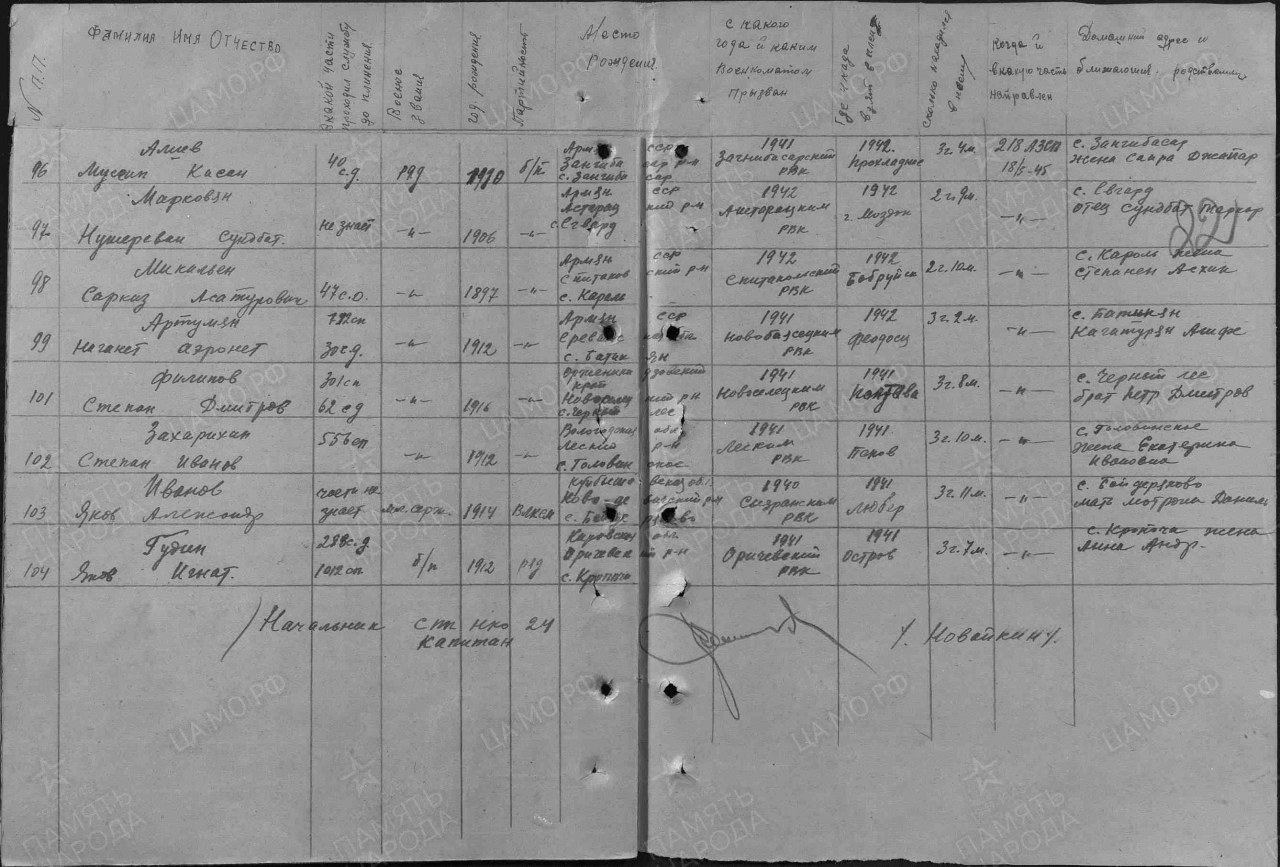 N П.П.
Фамилия Имя Отчество
В какой части проходил службу до пленения
Военое звание
год рождения
Партийность
Место Рождения
с какого года и каким Военкоматом Призван
Где и када взят в плен
сколько находился в плену
Когда и в какую часть направлен
Домашний адрес и ближайшие родственики
221
96 Алиев Муссип Касан 40 с.д. ряд 1910 б/п Армян ССР Зангибасар р-н с. Зангибасар 1941 Зангибасарский РВК 1942. Прохладное 3г 4м. 218 АЗСП 18/5-45 с. Зангибасар жена Саира Джапар
97 Марковян Нушереван Сумбат. не знает -"- 1906 -"- Армян ССР Астарацкий р-н с. Егвард 1942 Аштарацким РВК 1942 г. Моздок 2 г. 9м. -"- с. Егвард отец Сумбат Маркар
98 Микальен Саркиз Асатурович 47 с.д. -"- 1897 -"- Армян ССР Спитаковский р-н с. Кароль 1942 Спитаковский РВК 1942 Бобруйск 2г. 10м. -"- с. Кароль жена Степанен Асхик
99 Артумян Нагапет Аэропет 722сп 30 с.д. -"- 1912 -"- Армян ССР с. Батикян 1941 Новобаязецким РВК 1942 Феодосц 3г. 2м. -"- с. Батикян
101 Филипов Степан Дмитров 301 сп 62 сд -"- 1916 -"- Орженикидзовский край Новоселецкий р-н с. Черный лес 1941 Новоселецким РВК 1941 Полтава 3г. 8м. -"- с. Черный лес брат Петр Дмитров
102 Захарихин Степан Иванов 556 сп -"- 1912 -"- Вологодская обл. Леский р-н с. Головинское 1941 Леским РВК 1941. Псков 3г. 10м. -"- с. Головинское жена Екатерина Ивановна
103 Иванов Яков Александр части не знает мл. серж. 1914 Влксм Куйбышевская обл. Ново-девиевский р-н с. Байдеряково 1940 Сызранским РВК 1941 Любер 3г. 11м. -"- с. Байдеряково мать Мотрона Данил.
104 Гудин Яков Игнат. 298 с.д 1012 сп б/п 1912 ряд Кировская обл. Оричевский р-н 1941 Оричевский РВК 1941 Остров 3г. 7м. -"- жена Анна Андр.
/ Начальник СПП НКО 24
Капитан
/. Новайкин /.
ПАМЯТЬ НАРОДА
ЦА МО РФ